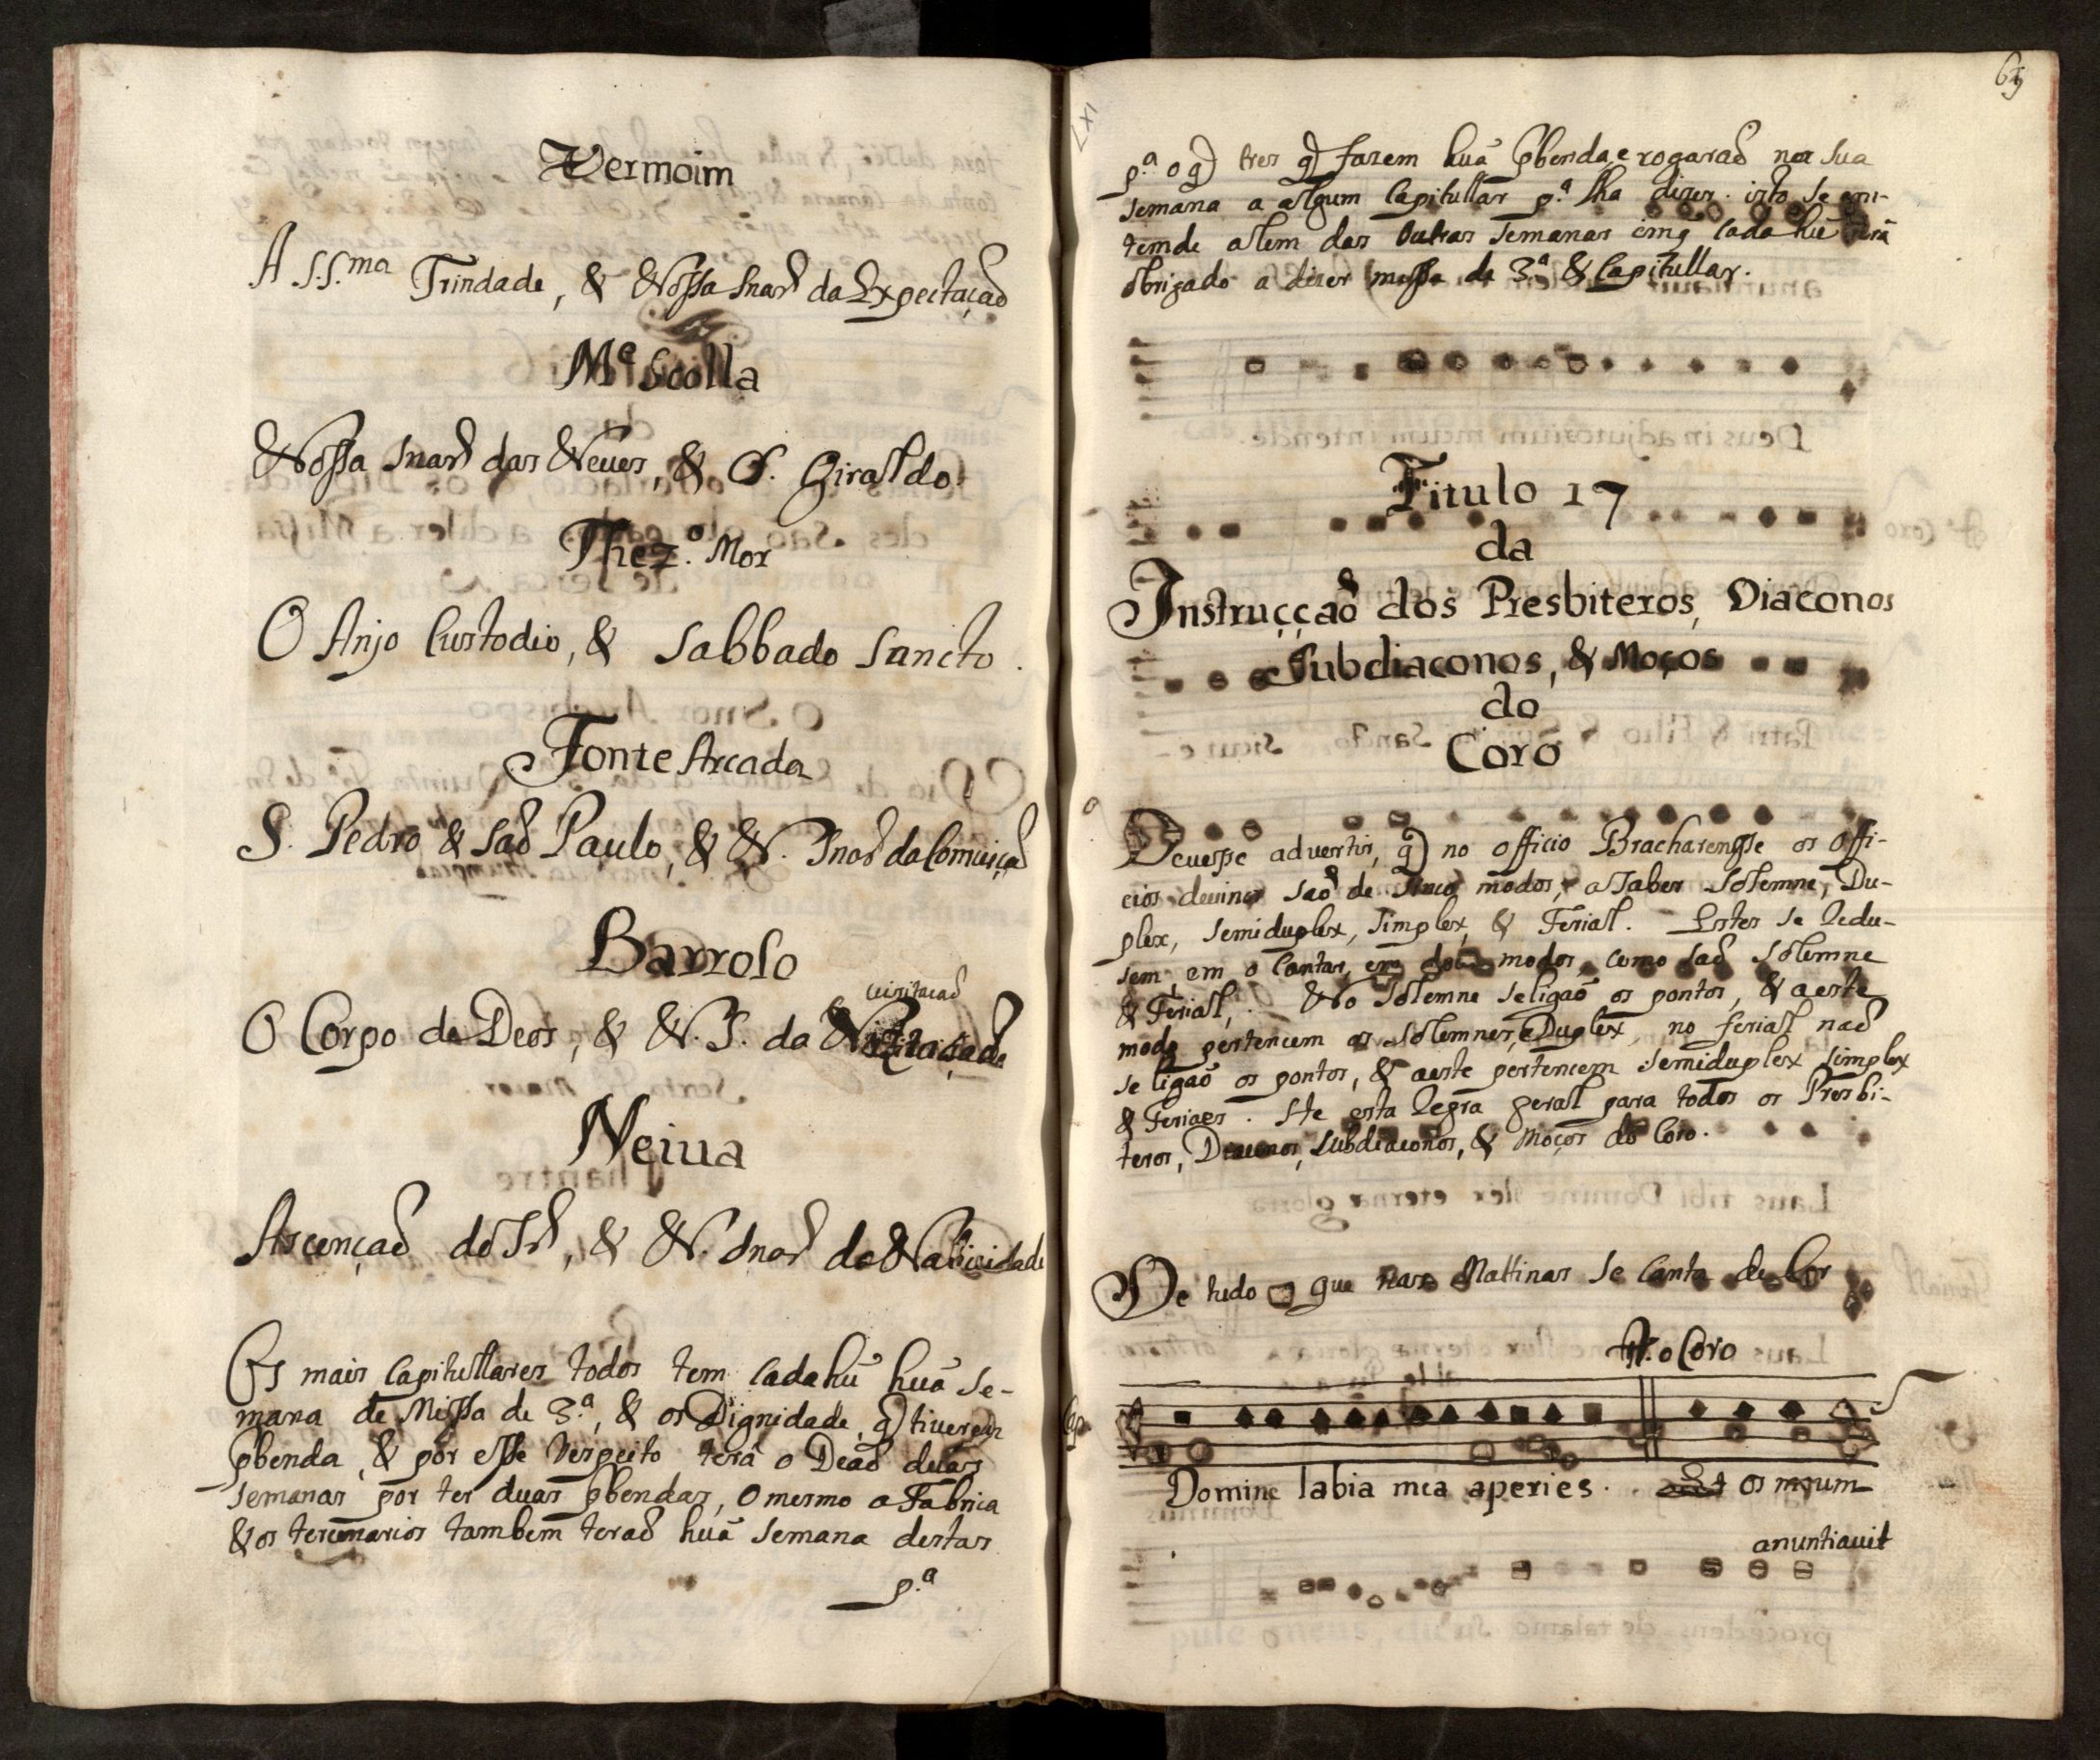 Vermoim
A S.S.ma Trindade, & Nossa Snar̃ da Expectaçaõ
Me Scolla
Nossa Snar̃ das Neues, & S. Giraldo
Thez.o Mor
O Anjo Custodio, & Sabbado Sancto.
Fonte Arcada
S. Pedro & Saõ Paulo, & N. Snar̃ da Comceiçaõ
Barroso
uizitacaõ
O Corpo de Deos, & N. S. da
Neiua
Ascençaõ do Sr̃, & N. Snar̃ da Natiuidade
Os mais Capitullares todos tem Cada hũ huã se-
mana de Missa de 3.a, & os Dignidade, q̃ tiuerem
pbenda, & por esse Respeito terâ o Deaõ duas
semanas por ter duas pbendas, o mesmo a Fabrica
& os tercenarios tambem teraõ huã semana destas
p.a
69
LXI
p.a o q̃ tres q̃ fazem huã pbenda, e rogaraõ na sua
semana a algum Capitullar p.a lha dizer. isto se em-
temde alem das Outras semanas em q̃ Cada hũ serâ
obrigado a dizer missa de 3.a & Capitullar.
Titulo 17
da
Instrucçaõ dos Presbiteros, Diaconos
Subdiaconos, & Moços
do
Coro
Deuesse advertir, q̃ no officio Bracharensse os Offi-
cios deuinos saõ de sinco modos, a saber Solemne, Du-
plex, semiduplex, simplex, & Ferial. Estes se Redu-
sem em o Cantar, em dois modos, como saõ Solemne
& Ferial,. No Solemne se ligaõ os pontos, & a este
modo pertencem os Solemnes, e Duplex, no ferial naõ
se ligaõ os pontos, & a este pertencem semiduplex simplex
& Feriaes. He esta Regra geral para todos os Presbi-
teros, Diaconos, Subdiaconos, & Moços do Coro.
De tudo o que nas Mattinas se Canta de Cor
R. o Coro
Domine labia mea aperies. Et os meum
anuntiauit